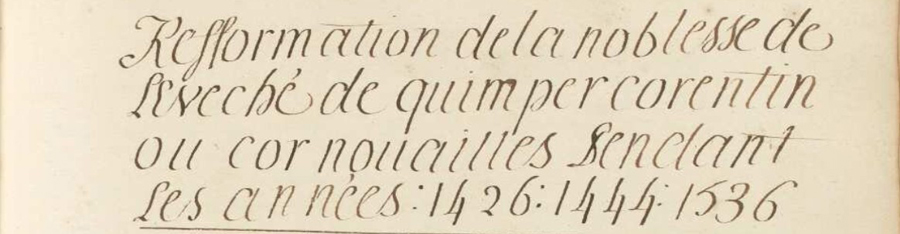 Refformation dela noblesse de
Leveché de quimper corentin
ou cor nouailles Pendant
Les années : 1426 : 1444 : 1536